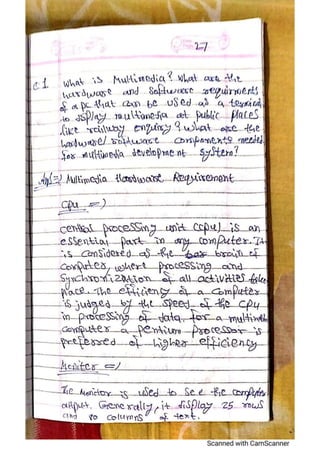 27
Q.1 What is Multimedia? What are the
hardware and Software requirments
of a pc that can be used as a terminal
to display multimedia at public places
like railway enquiry? What are the
hardware/software components needed
for multimedia development system?
Ans=) Multimedia Hardware Requirement
CPU =)
central processing unit (cpu) is an
essential part in any computer. It
is considered as the brain of
computer, where processing and
synchronization of all activities take
place. The efficiency of a computer
is judged by the speed of the CPU
in processing of data. for a multimedia
computer a pentium processor is
preferred of higher efficiency
Moniter =)
The Monitor is used to see the computer
output. Generally, it display 25 rows
and 80 columns of text.
Scanned with CamScanner